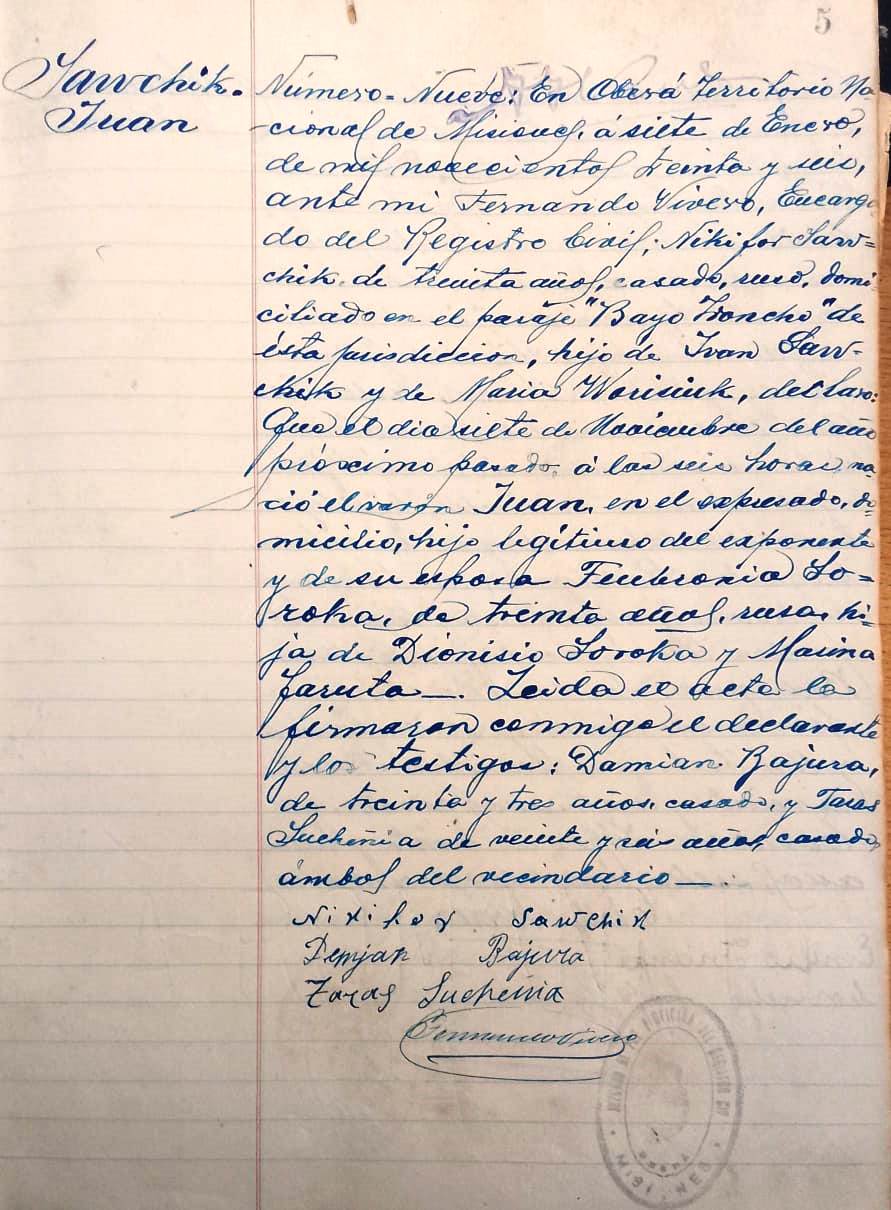 5
Sawchik.
Juan
Número= Nueve: En Oberá Territorio Na-
-cional de Misiones, á siete de Enero,
de mil novecientos treinta y seis,
ante mi Fernando Vivero, Encarga
do del Registro Civil; Nikifor Saw=
chik, de treinta años, casado, ruso, domi-
ciliado en el paraje "Bayo Troncho" de
ésta jurisdiccion, hijo de Ivan Saw-
chik y de Maria Worisiuk, declaro:
Que el dia siete de Noviembre del año
próximo pasado, á las seis horas, na-
ció el varón Juan, en el expresado, do-
micilio, hijo legítimo del exponente
y de su esposa Feubronia So=
roka, de treinta años, rusa, hi-
ja de Dionisio Soroka y Marina
Jaruta—. Leida el acta la
firmaron conmigo el declarante
y los testigos: Damian Bajura,
de treinta y tres años, casado, y Taras
Sucheñia de veinte y seis años, casado,
ámbos del vecindario—.
Nikifor Sawchik
Demjan Bajura
Taras Sucheinia
Fernando Vivero
OFICINA DEL REGISTRO CIV
OBERÁ
MISIONES